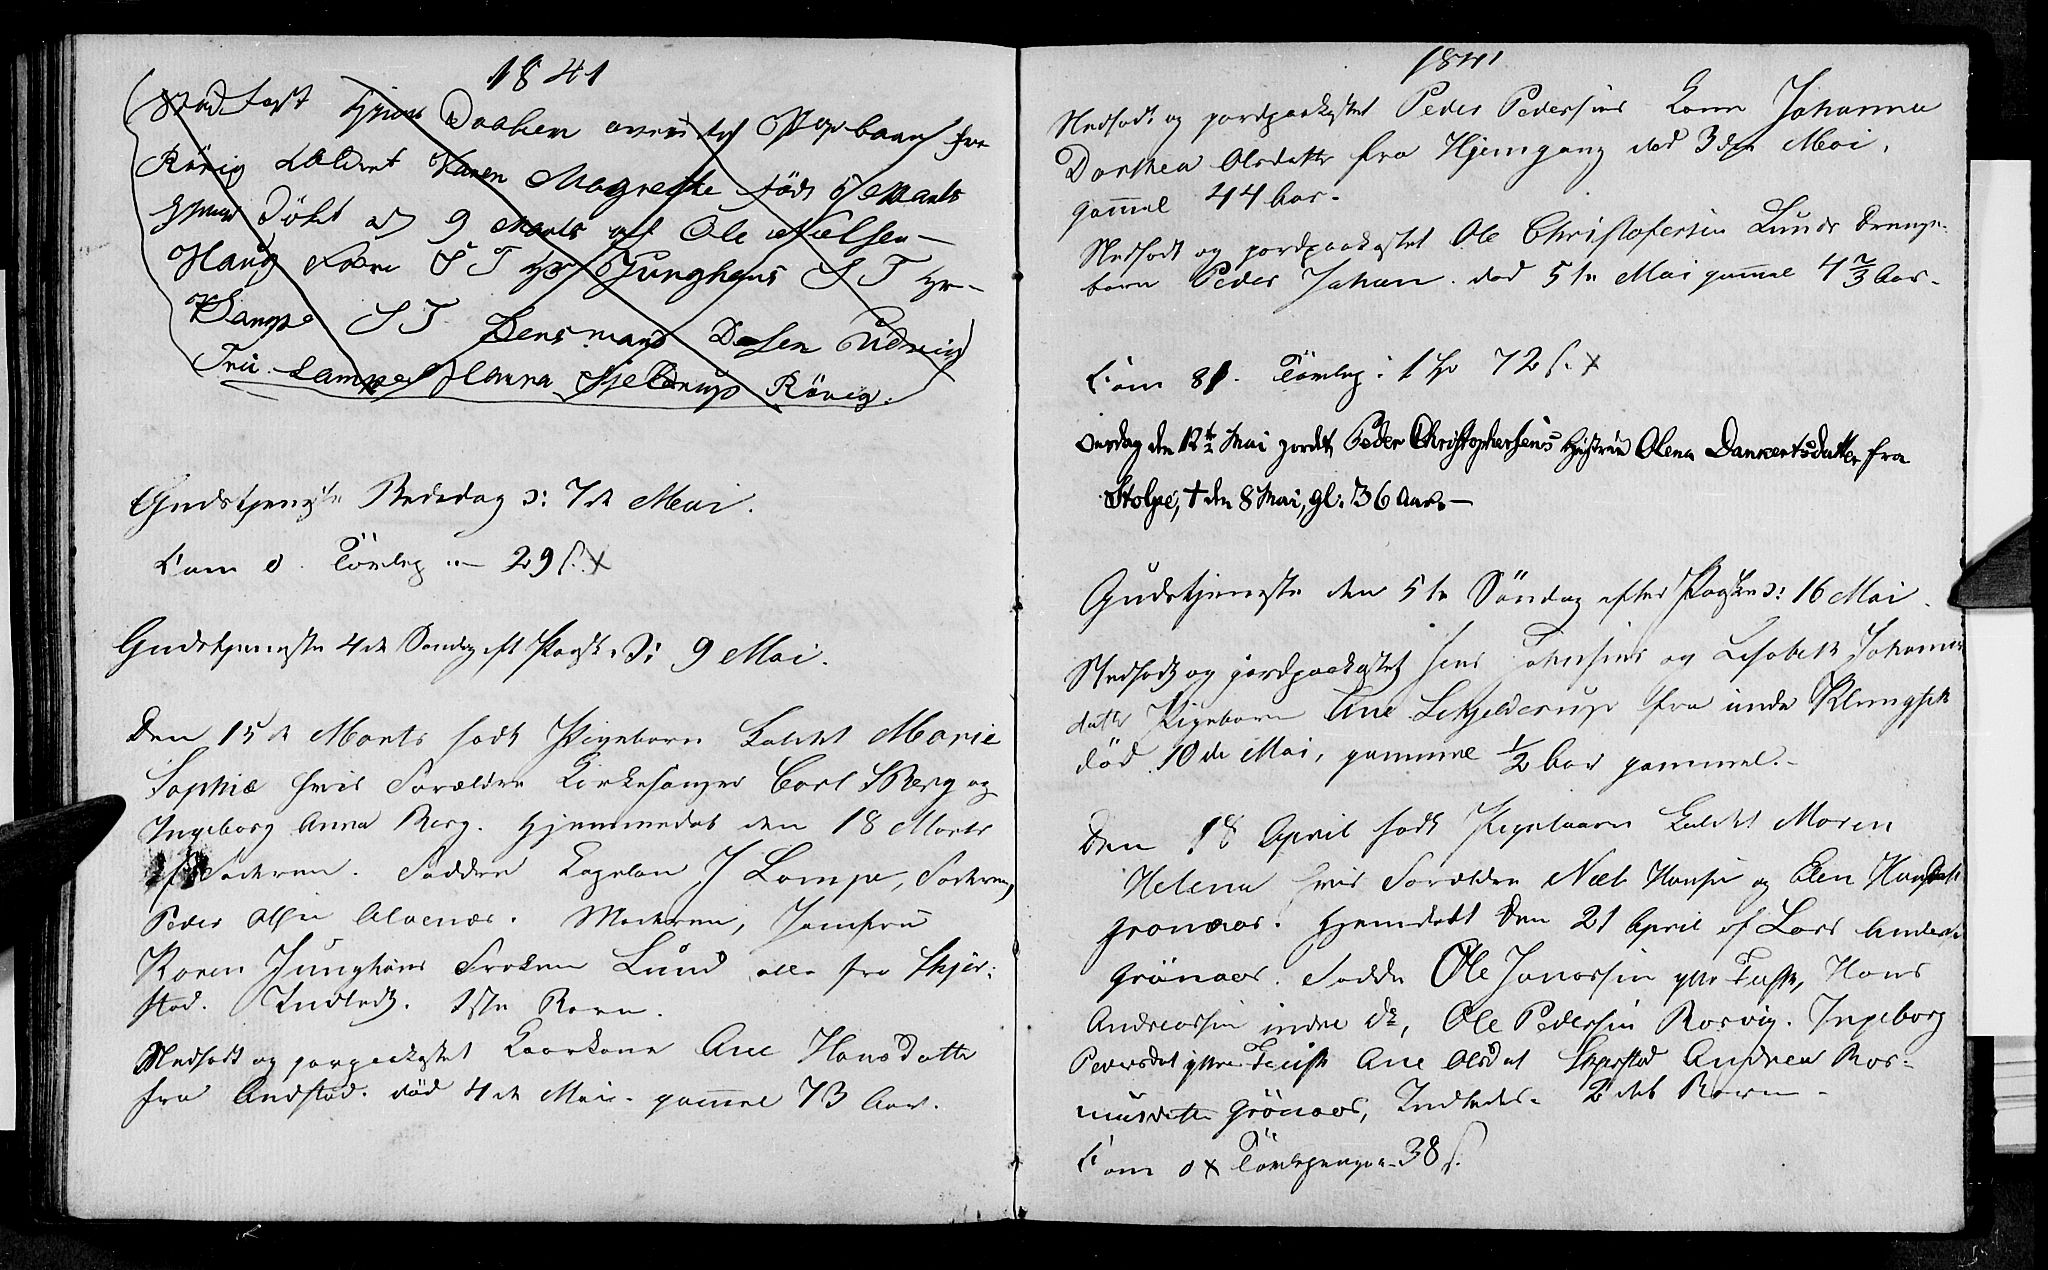 1841
Stadfæst Hjemme Daaben over et Pigebarn fra
Rörvig kaldet Karen Magrethe födt 6 Marts
Hjemme Döbt d 9 Marts af Ole Nielsen
Haug Fadre S T Hr Junghans S T Hr
Lampe S T Lensmand Rörvig
Fru Lampe Hanna Skjelderup Rörvig.
Gudstjeneste Bededag ɔ: 7de Mai.
Com 0. Tavlep - 29 s. x
Gudstjeneste 4de Søndag eft Paaske ɔ: 9 Mai.
Den 15de Marts født Pigebarn kaldet Marie
Sophie hvis Forældre Kirkesanger Carl S Berg og
Ingeborg Anna Berg. Hjemmedøbt den 18 Marts
af Faderen. Faddre Capelan J Lampe, Faderen,
Peder Olsen Alvenæs. Moderen, Jomfru
Karen Junghans Frøken Lund alle fra Skjer-
stad. Indledt. 1ste Barn.
Nedsadt og jordpaakastet Kaarkone Ane Hansdatter
fra Andstad. død 4de Mai. gammel 73 Aar.
1841
Nedsadt og jordpaakastet Peder Pedersens Kone Johanna
Dorthea Olsdatter fra Hjemgang død 3die Mai,
gammel 44 Aar.
Nedsadt og jordpaakastet Ole Christofersen Lunds Drenge-
barn Peder Johan. død 5te Mai gammel 4 2/3 Aar.
Com 81. Tavlep: 1 72 s. x
Onsdag den 12te Mai jordet Peder Christophersens Hustrue Olena Dankertsdatter fra
Stolpe, † den 8 Mai, gl: 36 Aar.—
Gudstjeneste den 5te Söndag efter Paaske ɔ: 16 Mai.
Nedsadt og jordpaakastet Jens Johnsens og Lisabeth Johannes
datter Pigebarn Ane Schjelderup fra indre Klungset
död 10de Mai, gammel 1/2 Aar gammel.
Den 18 April født Pigebarn kaldet Maren
Helena hvis Forældre Hansen og Elen Hansdatt
Grønaas. Hjemdøbt den 21 April af Lars Anders
Grönaas. Faddre Ole Jonassen ytre Fuske, Hans
Andreassen indre do, Ole Pedersen Rosvig. Ingeborg
Pedersdat ytre Fuske Ane Olsdat Skjerstad Andrea Ras-
musdatter Grönaas, Indledes. 2det Barn.
Com 0 x Tavlepenge 38 s.